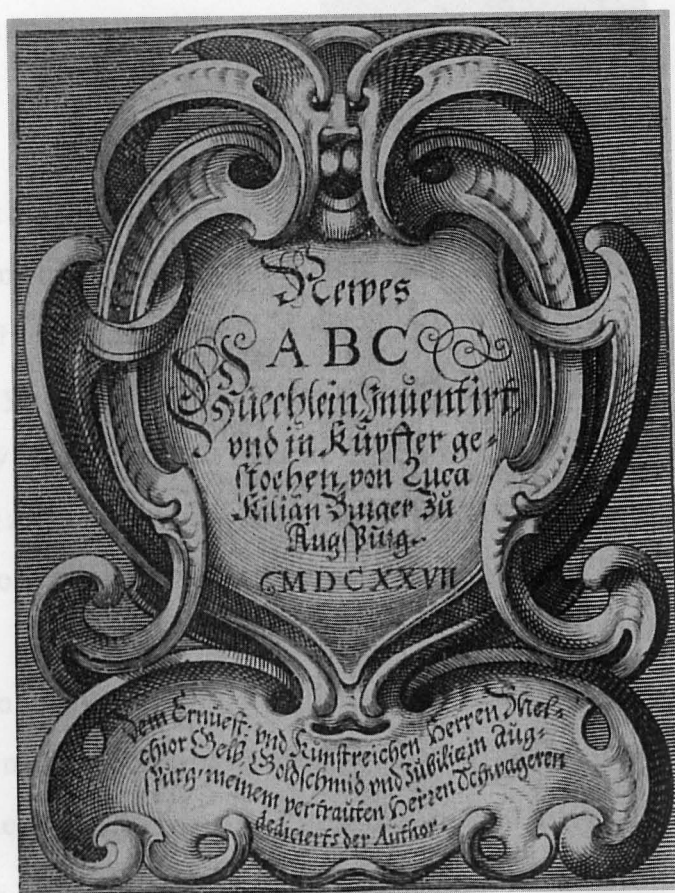 Newes
ABC
Büechlein, Inuentirt,
vnd in Kupffer ge-
stochen, von Luca
Kilian Burger Zů
Augspurg.
MDCXXVII
Dem Ernuest- vnd Kunstreichen Herren Mel-
chior Gelb Goldschmid vnd Jubilier in Aug-
spurg, meinem vertrauten Herren Schwageren
dedicierts der Author.